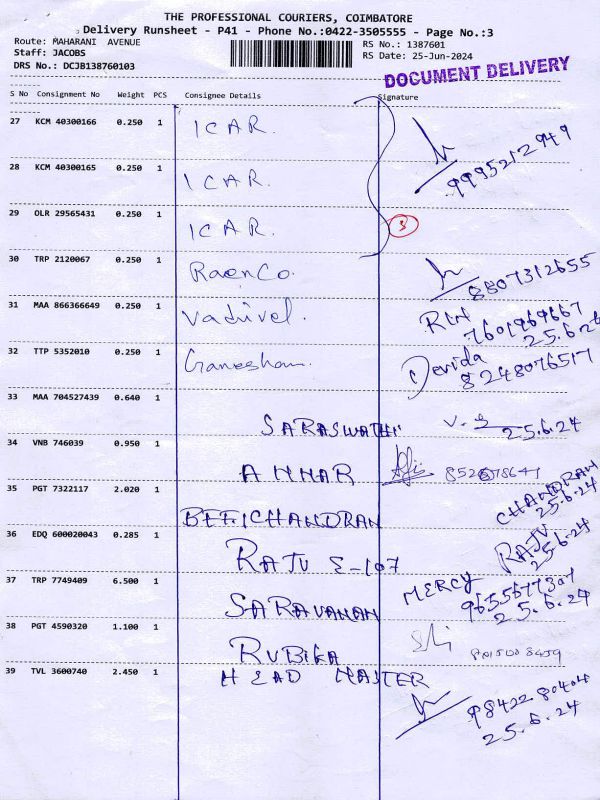 THE PROFESSIONAL COURIERS, COIMBATORE
Delivery Runsheet - P41 - Phone No.:0422-3505555 - Page No.:3
Route: MAHARANI AVENUE
RS No.: 1387601
Staff: JACOBS
RS Date: 25-Jun-2024
DRS No.: DCJB138760103
DOCUMENT DELIVERY
S No Consignment No Weight PCS Consignee Details Signature
27 KCM 40300166 0.250 1 ICAR.
9995212949
28 KCM 40300165 0.250 1 ICAR.
29 OLR 29565431 0.250 1 ICAR.
3
30 TRP 2120067 0.250 1 RaenCo.
8807312655
31 MAA 866366649 0.250 1 Vadivel.
7601969667
25.6.26
32 TTP 5352010 0.250 1 Ganesham.
Devida
8248076517
33 MAA 704527439 0.640 1 SARASWATHI
25.6.24
34 VNB 746039 0.950 1 ANNAR
35 PGT 7322117 2.020 1 BETICHANDRAN
CHANDRAN
25.6.24
36 EDQ 600020043 0.285 1 RAJU E-107
RAJU
25.6.24
37 TRP 7749409 6.500 1 SARAVANAN
MERCY
9655677307
25.6.24
38 PGT 4590320 1.100 1 RUBIKA
39 TVL 3600740 2.450 1 HEAD MASTER
9842280404
25.6.24